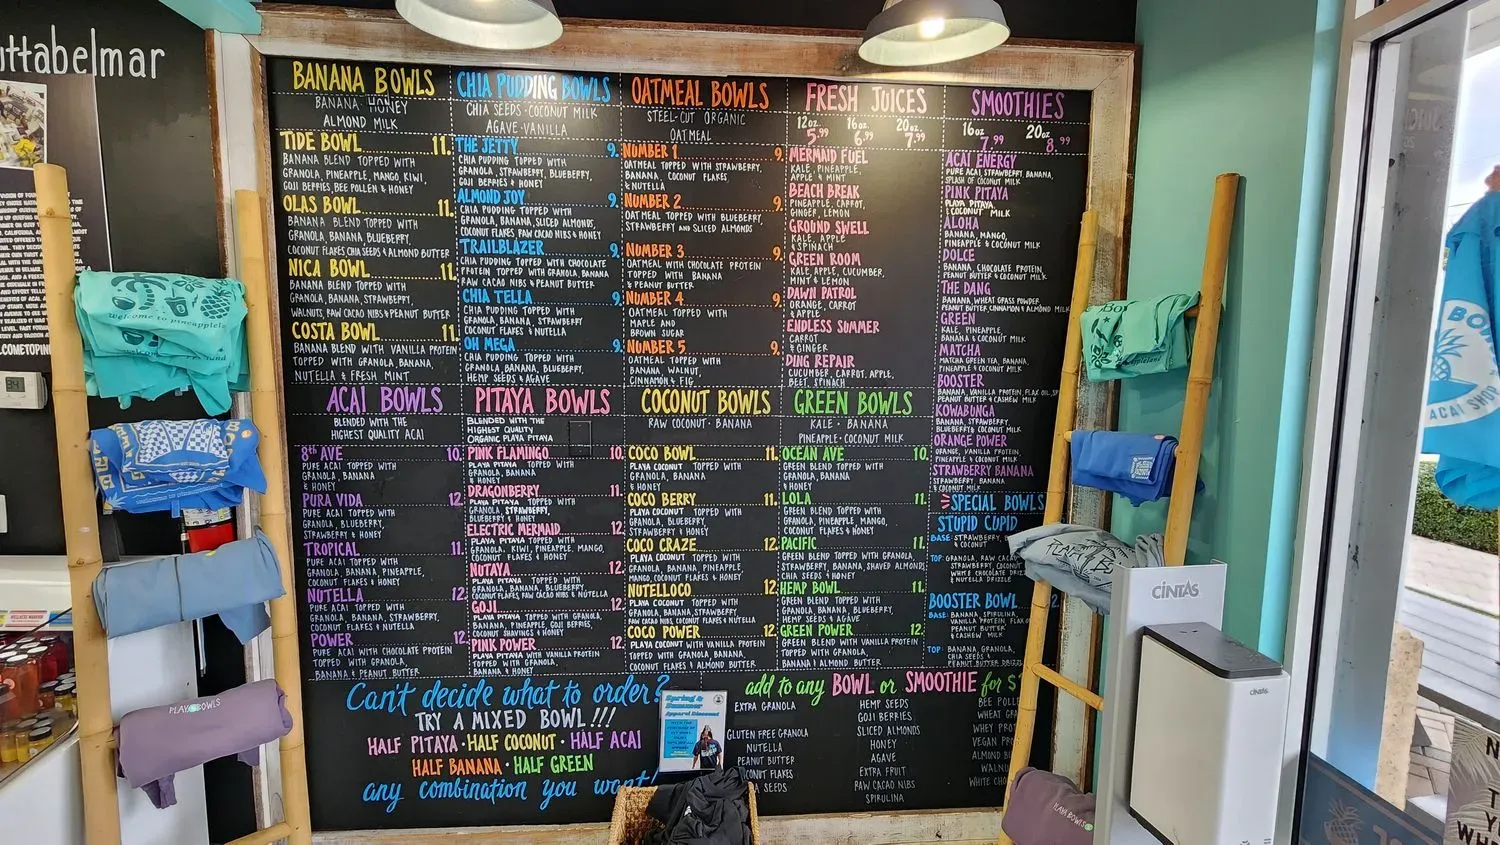 uttabelmar
BANANA BOWLS
BANANA · HONEY
ALMOND MILK
TIDE BOWL 11.
BANANA BLEND TOPPED WITH
GRANOLA, PINEAPPLE, MANGO, KIWI,
GOJI BERRIES, BEE POLLEN & HONEY
OLAS BOWL 11.
BANANA BLEND TOPPED WITH
GRANOLA, BANANA, BLUEBERRY,
COCONUT FLAKES, CHIA SEEDS & ALMOND BUTTER
NICA BOWL 11.
BANANA BLEND TOPPED WITH
GRANOLA, BANANA, STRAWBERRY,
WALNUTS, RAW CACAO NIBS & PEANUT BUTTER
COSTA BOWL 11.
BANANA BLEND WITH VANILLA PROTEIN
TOPPED WITH GRANOLA, BANANA,
NUTELLA & FRESH MINT
CHIA PUDDING BOWLS
CHIA SEEDS · COCONUT MILK
AGAVE · VANILLA
THE JETTY 9.
CHIA PUDDING TOPPED WITH
GRANOLA, STRAWBERRY, BLUEBERRY,
GOJI BERRIES & HONEY
ALMOND JOY 9.
CHIA PUDDING TOPPED WITH
GRANOLA, BANANA, SLICED ALMONDS,
COCONUT FLAKES, RAW CACAO NIBS & HONEY
TRAILBLAZER 9.
CHIA PUDDING TOPPED WITH CHOCOLATE
PROTEIN TOPPED WITH GRANOLA, BANANA
RAW CACAO NIBS & PEANUT BUTTER
CHIA TELLA 9.
CHIA PUDDING TOPPED WITH
GRANOLA, BANANA, STRAWBERRY
COCONUT FLAKES & NUTELLA
OH MEGA 9.
CHIA PUDDING TOPPED WITH
GRANOLA, BANANA, BLUEBERRY,
HEMP SEEDS & AGAVE
OATMEAL BOWLS
STEEL-CUT ORGANIC
OATMEAL
NUMBER 1 9.
OATMEAL TOPPED WITH STRAWBERRY,
BANANA, COCONUT FLAKES
& NUTELLA
NUMBER 2 9.
OATMEAL TOPPED WITH BLUEBERRY,
STRAWBERRY AND SLICED ALMONDS
NUMBER 3 9.
OATMEAL WITH CHOCOLATE PROTEIN
TOPPED WITH BANANA
& PEANUT BUTTER
NUMBER 4 9.
OATMEAL TOPPED WITH
MAPLE AND
BROWN SUGAR
NUMBER 5 9.
OATMEAL TOPPED WITH
BANANA, WALNUT,
CINNAMON & FIG
FRESH JUICES
12oz. 16oz. 20oz.
5.99 6.99 7.99
MERMAID FUEL
KALE, PINEAPPLE,
APPLE & MINT
BEACH BREAK
PINEAPPLE, CARROT,
GINGER, LEMON
GROUND SWELL
KALE, APPLE
& SPINACH
GREEN ROOM
KALE, APPLE, CUCUMBER,
MINT & LEMON
DAWN PATROL
ORANGE, CARROT
& APPLE
ENDLESS SUMMER
CARROT
& GINGER
DING REPAIR
CUCUMBER, CARROT, APPLE,
BEET, SPINACH
SMOOTHIES
16oz 20oz
7.99 8.99
ACAI ENERGY
PURE ACAI, STRAWBERRY, BANANA,
SPLASH OF COCONUT MILK
PINK PITAYA
PLAYA PITAYA
& COCONUT MILK
ALOHA
BANANA, MANGO,
PINEAPPLE & COCONUT MILK
DOLCE
BANANA, CHOCOLATE PROTEIN,
PEANUT BUTTER & COCONUT MILK
THE DANG
BANANA, WHEAT GRASS POWDER
PEANUT BUTTER, CINNAMON & ALMOND MILK
GREEN
KALE, PINEAPPLE,
BANANA & COCONUT MILK
MATCHA
MATCHA GREEN TEA, BANANA,
PINEAPPLE & COCONUT MILK
BOOSTER
BANANA, VANILLA PROTEIN, FLAX OIL,
PEANUT BUTTER & CASHEW MILK
KOWABUNGA
BANANA, STRAWBERRY,
BLUEBERRY & COCONUT MILK
ORANGE POWER
ORANGE, VANILLA PROTEIN,
PINEAPPLE & COCONUT MILK
STRAWBERRY BANANA
& COCONUT MILK
ACAI BOWLS
BLENDED WITH THE
HIGHEST QUALITY ACAI
8th AVE 10.
PURE ACAI TOPPED WITH
GRANOLA, BANANA
& HONEY
PURA VIDA 12.
PURE ACAI TOPPED WITH
GRANOLA, BLUEBERRY,
STRAWBERRY & HONEY
TROPICAL 11.
PURE ACAI TOPPED WITH
GRANOLA, BANANA, PINEAPPLE,
COCONUT FLAKES & HONEY
NUTELLA 12.
PURE ACAI TOPPED WITH
GRANOLA, BANANA, STRAWBERRY,
COCONUT FLAKES & NUTELLA
POWER 12.
PURE ACAI WITH CHOCOLATE PROTEIN
TOPPED WITH GRANOLA,
BANANA & PEANUT BUTTER
PITAYA BOWLS
BLENDED WITH THE
HIGHEST QUALITY
ORGANIC PLAYA PITAYA
PINK FLAMINGO 10.
PLAYA PITAYA TOPPED WITH
GRANOLA, BANANA
& HONEY
DRAGONBERRY 11.
PLAYA PITAYA TOPPED WITH
GRANOLA, STRAWBERRY,
BLUEBERRY & HONEY
ELECTRIC MERMAID 12.
PLAYA PITAYA TOPPED WITH
GRANOLA, KIWI, PINEAPPLE, MANGO,
COCONUT FLAKES & HONEY
NUTAYA 12.
PLAYA PITAYA TOPPED WITH
GRANOLA, BANANA, BLUEBERRY,
COCONUT FLAKES, RAW CACAO NIBS & NUTELLA
GOJI 12.
PLAYA PITAYA TOPPED WITH GRANOLA,
BANANA, PINEAPPLE, GOJI BERRIES,
COCONUT SHAVINGS & HONEY
PINK POWER 12.
PLAYA PITAYA WITH VANILLA PROTEIN
TOPPED WITH GRANOLA,
BANANA & HONEY
COCONUT BOWLS
RAW COCONUT · BANANA
COCO BOWL 11.
PLAYA COCONUT TOPPED WITH
GRANOLA, BANANA
& HONEY
COCO BERRY 11.
PLAYA COCONUT TOPPED WITH
GRANOLA, BLUEBERRY,
STRAWBERRY & HONEY
COCO CRAZE 12.
PLAYA COCONUT TOPPED WITH
GRANOLA, BANANA, PINEAPPLE,
MANGO, COCONUT FLAKES & HONEY
NUTELLOCO 12.
PLAYA COCONUT TOPPED WITH
GRANOLA, BANANA, STRAWBERRY,
RAW CACAO NIBS, COCONUT FLAKES & NUTELLA
COCO POWER 12.
PLAYA COCONUT WITH VANILLA PROTEIN
TOPPED WITH GRANOLA, BANANA,
COCONUT FLAKES & ALMOND BUTTER
GREEN BOWLS
KALE · BANANA
PINEAPPLE · COCONUT MILK
OCEAN AVE 10.
GREEN BLEND TOPPED WITH
GRANOLA, BANANA
& HONEY
LOLA 11.
GREEN BLEND TOPPED WITH
GRANOLA, PINEAPPLE, MANGO,
COCONUT FLAKES & HONEY
PACIFIC 11.
GREEN BLEND TOPPED WITH GRANOLA,
BANANA, STRAWBERRY, SHAVED ALMONDS,
CHIA SEEDS & HONEY
HEMP BOWL 11.
GREEN BLEND TOPPED WITH
GRANOLA, BANANA, BLUEBERRY,
HEMP SEEDS & AGAVE
GREEN POWER 12.
GREEN BLEND WITH VANILLA PROTEIN
TOPPED WITH GRANOLA,
BANANA & ALMOND BUTTER
SPECIAL BOWLS
STUPID CUPID
BASE: STRAWBERRY,
& COCONUT
TOP: GRANOLA, RAW CACAO
COCONUT FLAKES,
WHITE CHOCOLATE DRIZZLE
& NUTELLA DRIZZLE
BOOSTER BOWL
BASE: BANANA, SPIRULINA,
VANILLA PROTEIN, FLAX
PEANUT BUTTER
& CASHEW MILK
TOP: BANANA, GRANOLA,
CHIA SEEDS &
PEANUT BUTTER DRIZZLE
Can't decide what to order?
TRY A MIXED BOWL!!!
HALF PITAYA · HALF COCONUT · HALF ACAI
HALF BANANA · HALF GREEN
any combination you want!
Spring &
Summer
Apparel Discount
add to any BOWL or SMOOTHIE for $
EXTRA GRANOLA
GLUTEN FREE GRANOLA
NUTELLA
PEANUT BUTTER
COCONUT FLAKES
SEEDS
HEMP SEEDS
GOJI BERRIES
SLICED ALMONDS
HONEY
AGAVE
EXTRA FRUIT
RAW CACAO NIBS
SPIRULINA
BEE POLLE
WHEAT GRA
WHEY PROT
VEGAN PRO
ALMOND B
WALNU
WHITE CHO
welcome to pineappleland
PLAYA BOWLS
PLAYA BOWLS
CINTAS
CINTAS
ACAI SHO